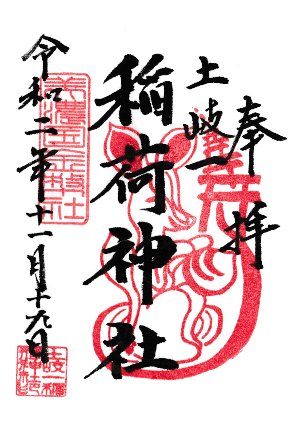 奉拝
土岐一
稲荷神社
令和二年十一月十九日